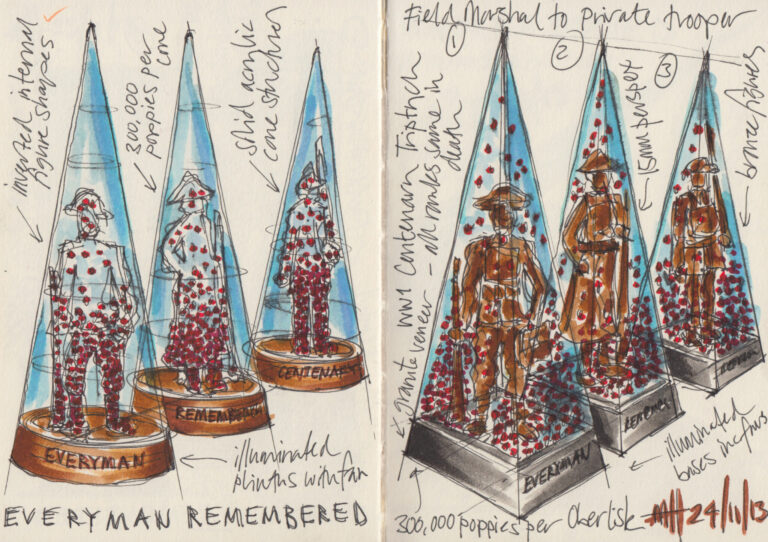 inverted internal
figure shapes
300,000
poppies per
cone
solid acrylic
cone structures
EVERYMAN
REMEMBERED
CENTENARY
illuminated
plinths with fan
EVERYMAN REMEMBERED
Field Marshal to private trooper
1
2
3
WW1 Centenary Triptych
- all ranks same in
death
granite veneer
15mm perspex
bronze figures
EVERYMAN
illuminated
bases inc fans
300,000 poppies per Oberlisk
24/11/13